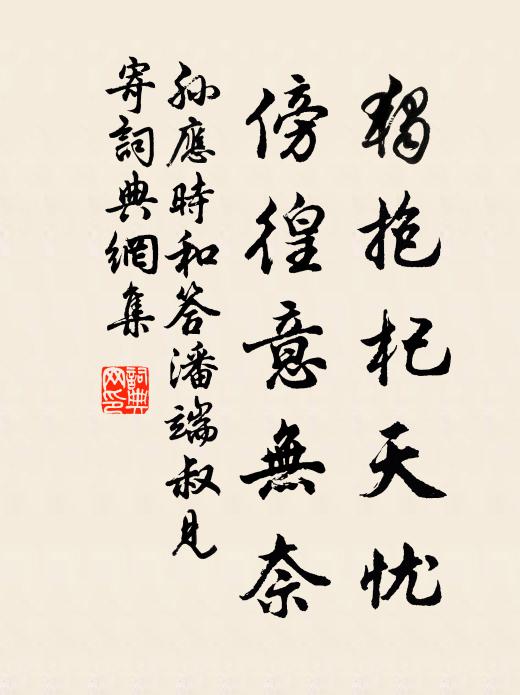 獨抱杞天忧
傍徨意無奈
孫應時和答潘端叔見
寄詞典網集
詞典
网印